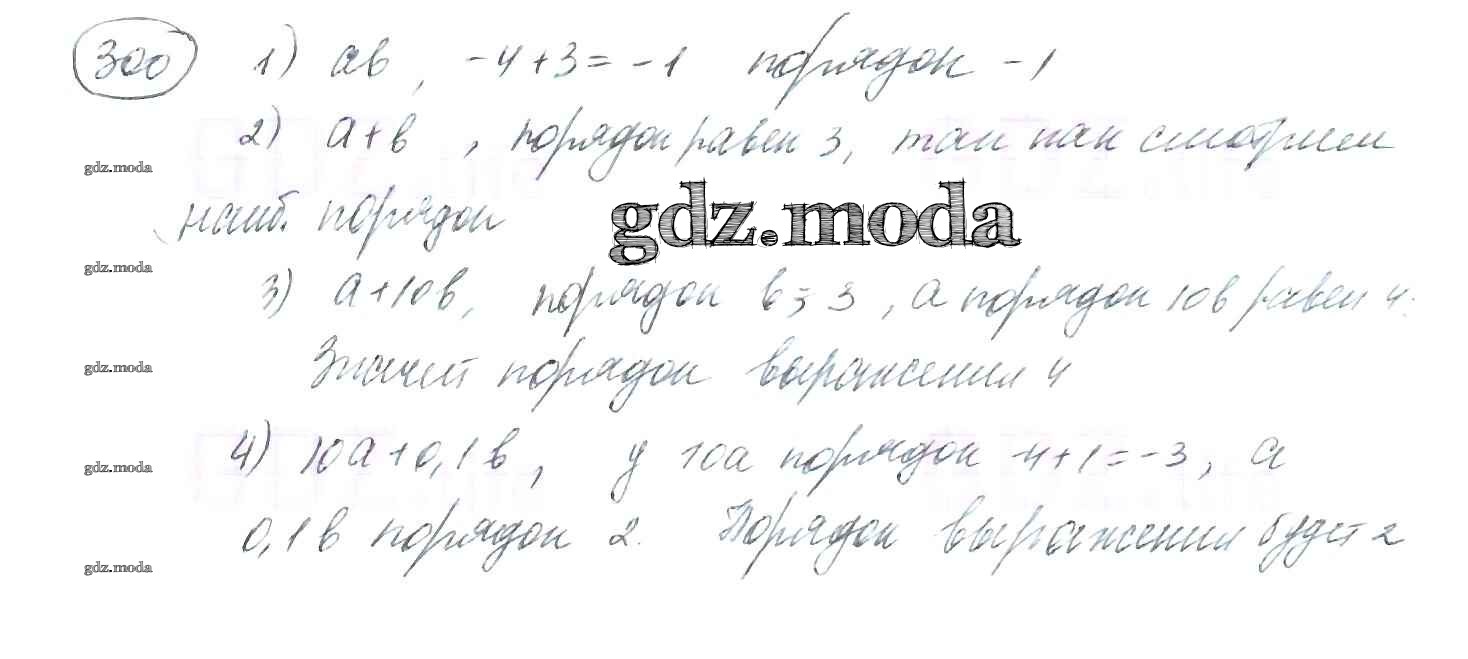 300 1) ab, -4+3=-1 порядок -1
2) a+b, порядок равен 3, так как смотрим
gdz.moda
наиб. порядок
gdz.moda
gdz.moda
3) a+10b, порядок b = 3, а порядок 10b равен 4.
gdz.moda
Значит порядок выражения 4
4) 10a+0,1b, у 10a порядок -4+1=-3, а
gdz.moda
0,1b порядок 2. Порядок выражения будет 2
gdz.moda